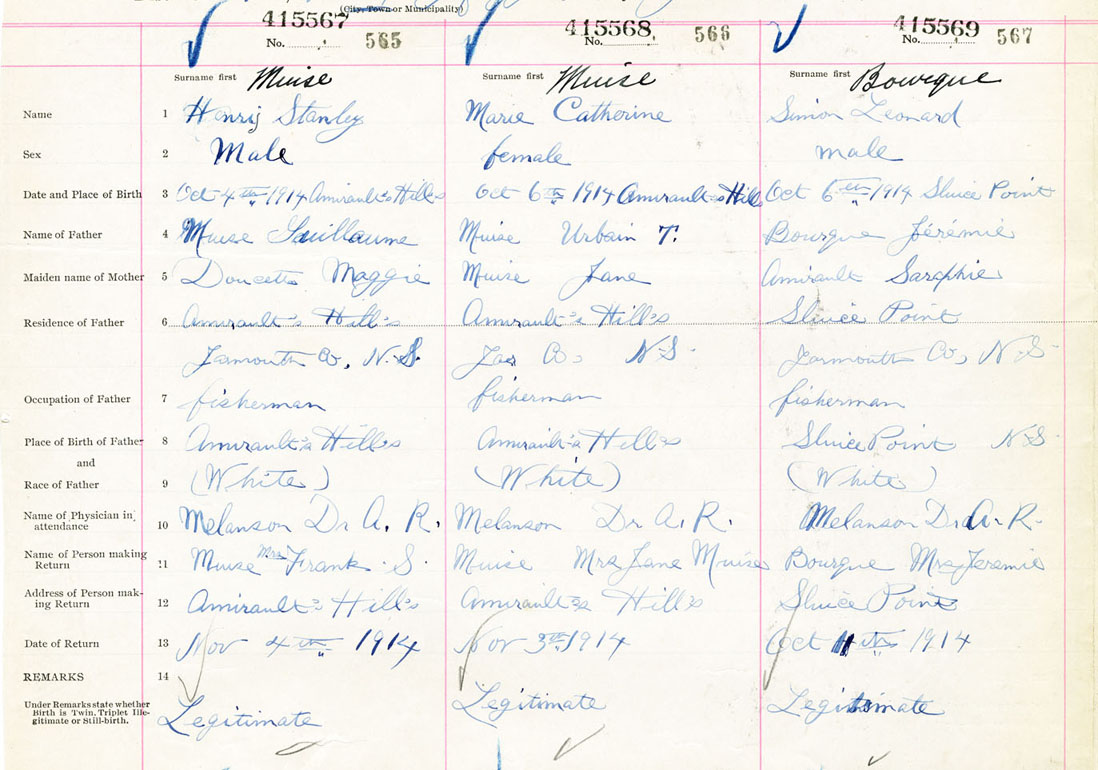 (City, Town or Municipality)
415567 415568 415569
No. 565 No. 566 No. 567
Surname first Muise Surname first Muise Surname first Bourque
Name 1 Henry Stanley Marie Catherine Simon Leonard
Sex 2 Male female male
Date and Place of Birth 3 Oct 4th 1914 Amirault's Hill's Oct 6th 1914 Amirault's Hill Oct 6th 1914 Sluice Point
Name of Father 4 Muise Guillaume Muise Urbain T. Bourque Jérémie
Maiden name of Mother 5 Doucette Maggie Muise Jane Amirault Saraphie
Residence of Father 6 Amirault's Hill's Amirault's Hill's Sluice Point
Yarmouth Co, N.S. Yar Co, N-S Yarmouth Co, N-S-
Occupation of Father 7 fisherman fisherman fisherman
Place of Birth of Father 8 Amirault's Hill's Amirault's Hill's Sluice Point N-S
and
Race of Father 9 (White) (White) (White)
Name of Physician in attendance 10 Melanson Dr A. R. Melanson Dr A. R. Melanson Dr A. R.
Name of Person making Return 11 Muise Mrs Frank S. Muise Mrs Jane Muise Bourque Mrs Jeremie
Address of Person making Return 12 Amirault's Hill's Amirault's Hill's Sluice Point
Date of Return 13 Nov 4th 1914 Nov 3rd 1914 Oct 11th 1914
REMARKS 14
Under Remarks state whether Birth is Twin, Triplet Illegitimate or Still-birth. Legitimate Legitimate Legitimate